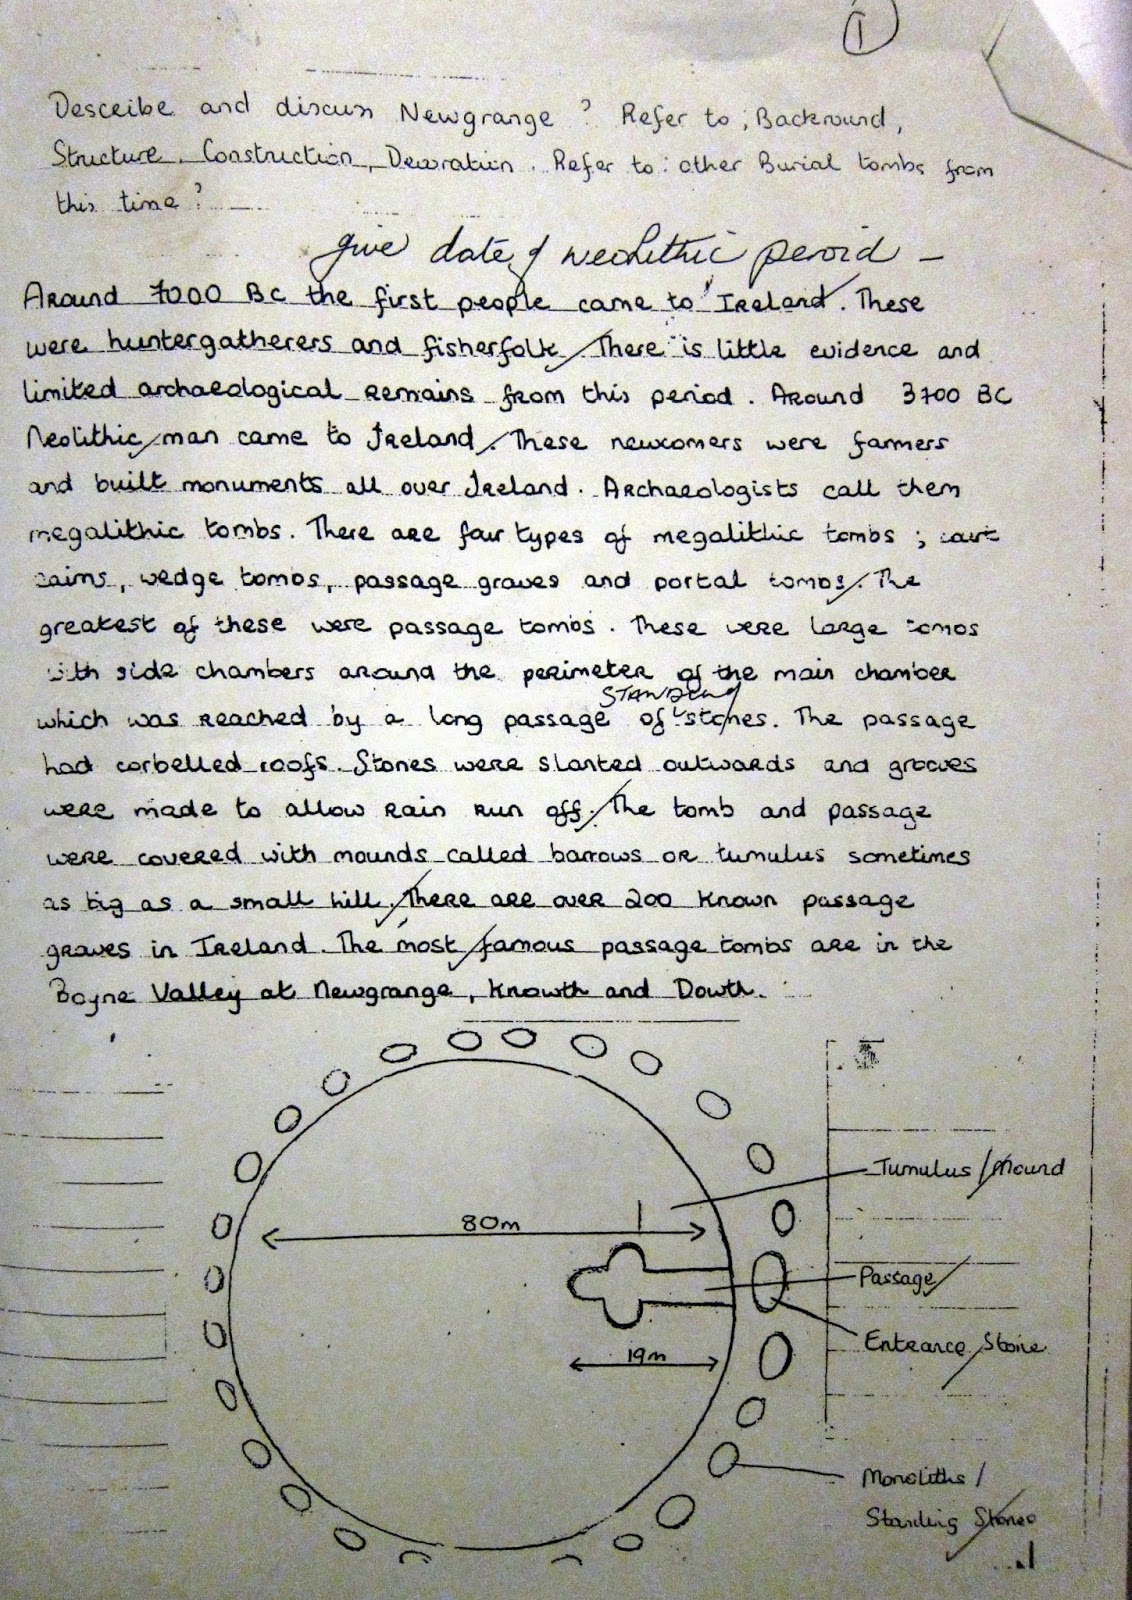 1
Describe and discuss Newgrange? Refer to; Backround,
Structure, Construction, Decoration. Refer to: other Burial tombs from
this time?
give date of neolithic peroid -
Around 7000 BC the first people came to Ireland. These
were huntergatherers and fisherfolk. There is little evidence and
limited archaeological remains from this period. Around 3700 BC
Neolithic man came to Ireland. These newcomers were farmers
and built monuments all over Ireland. Archaeologists call them
megalithic tombs. There are four types of megalithic tombs; cart
cairns, wedge tombs, passage graves and portal tombs. The
greatest of these were passage tombs. These were large tombs
with side chambers around the perimeter of the main chamber
STANDING
which was reached by a long passage of stones. The passage
had corbelled roofs. Stones were slanted outwards and grooves
were made to allow rain run off. The tomb and passage
were covered with mounds called barrows or tumulus sometimes
as big as a small hill. There are over 200 known passage
graves in Ireland. The most famous passage tombs are in the
Boyne Valley at Newgrange, Knowth and Dowth.
Tumulus/Mound
80m
Passage
Entrance Stone
19m
Monoliths/
Standing Stones